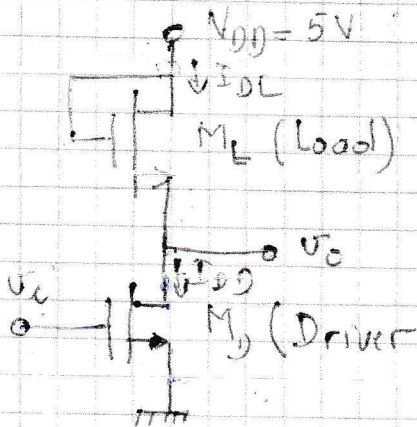 V_DD = 5V
↓ I_DL
M_L (Load)
v_o
↓ I_DD
v_i
M_D (Driver